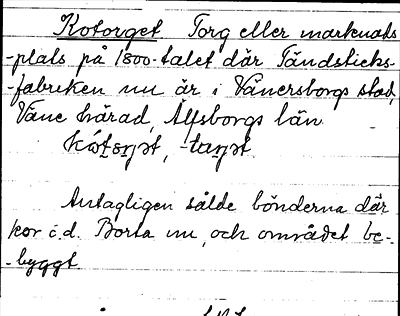 Kotorget Torg eller marknads-
-plats på 1800-talet där Tändsticks-
-fabriken nu är i Vänersborgs stad,
Väne härad, Älfsborgs län
Antagligen sålde bönderna där
kor o.d. Borta nu, och området be-
-byggt.